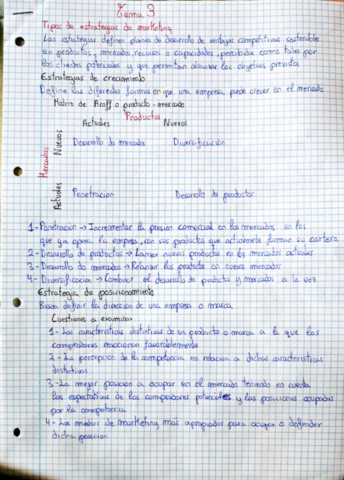 Tema 3
Tipos de estrategias de marketing
Las estrategias definen planes de desarrollo de ventajas competitivas sostenibles
en productos, mercados, recursos o capacidades, percibidas como tales por
los clientes potenciales y que permitan alcanzar los objetivos previstos
Estrategias de crecimiento
Define las diferentes formas en que una empresa puede crecer en el mercado
Matriz de Ansoff o producto-mercado
Productos
Actuales Nuevos
Mercados
Nuevos
Desarrollo de mercados Diversificación
Actuales
Penetracion Desarrollo de productos
1- Penetración → Incrementar la presion comercial en los mercados en los
que ya opera la empresa, con sus productos que actualmente forman su cartera
2- Desarrollo de productos → Lanzar nuevos productos en los mercados actuales
3- Desarrollo de mercados → los productos en nuevos mercados
4- Diversificación → Combinar el desarrollo de productos y mercados a la vez
Estrategia de posicionamiento
Busca definir la dirección de una empresa o marca
Cuestiones a examinar
1- Las características distintivas de un producto o marca a la que los
compradores reaccionan favorablemente
2- La percepción de la competencia en relación a dichas características
distintivas
3- La mejor posición a ocupar en el mercado teniendo en cuenta
las expectativas de los compradores potenciales y las posiciones ocupadas
por la competencia
4- Los medios de marketing mas apropiados para ocupar o defender
dicha posición